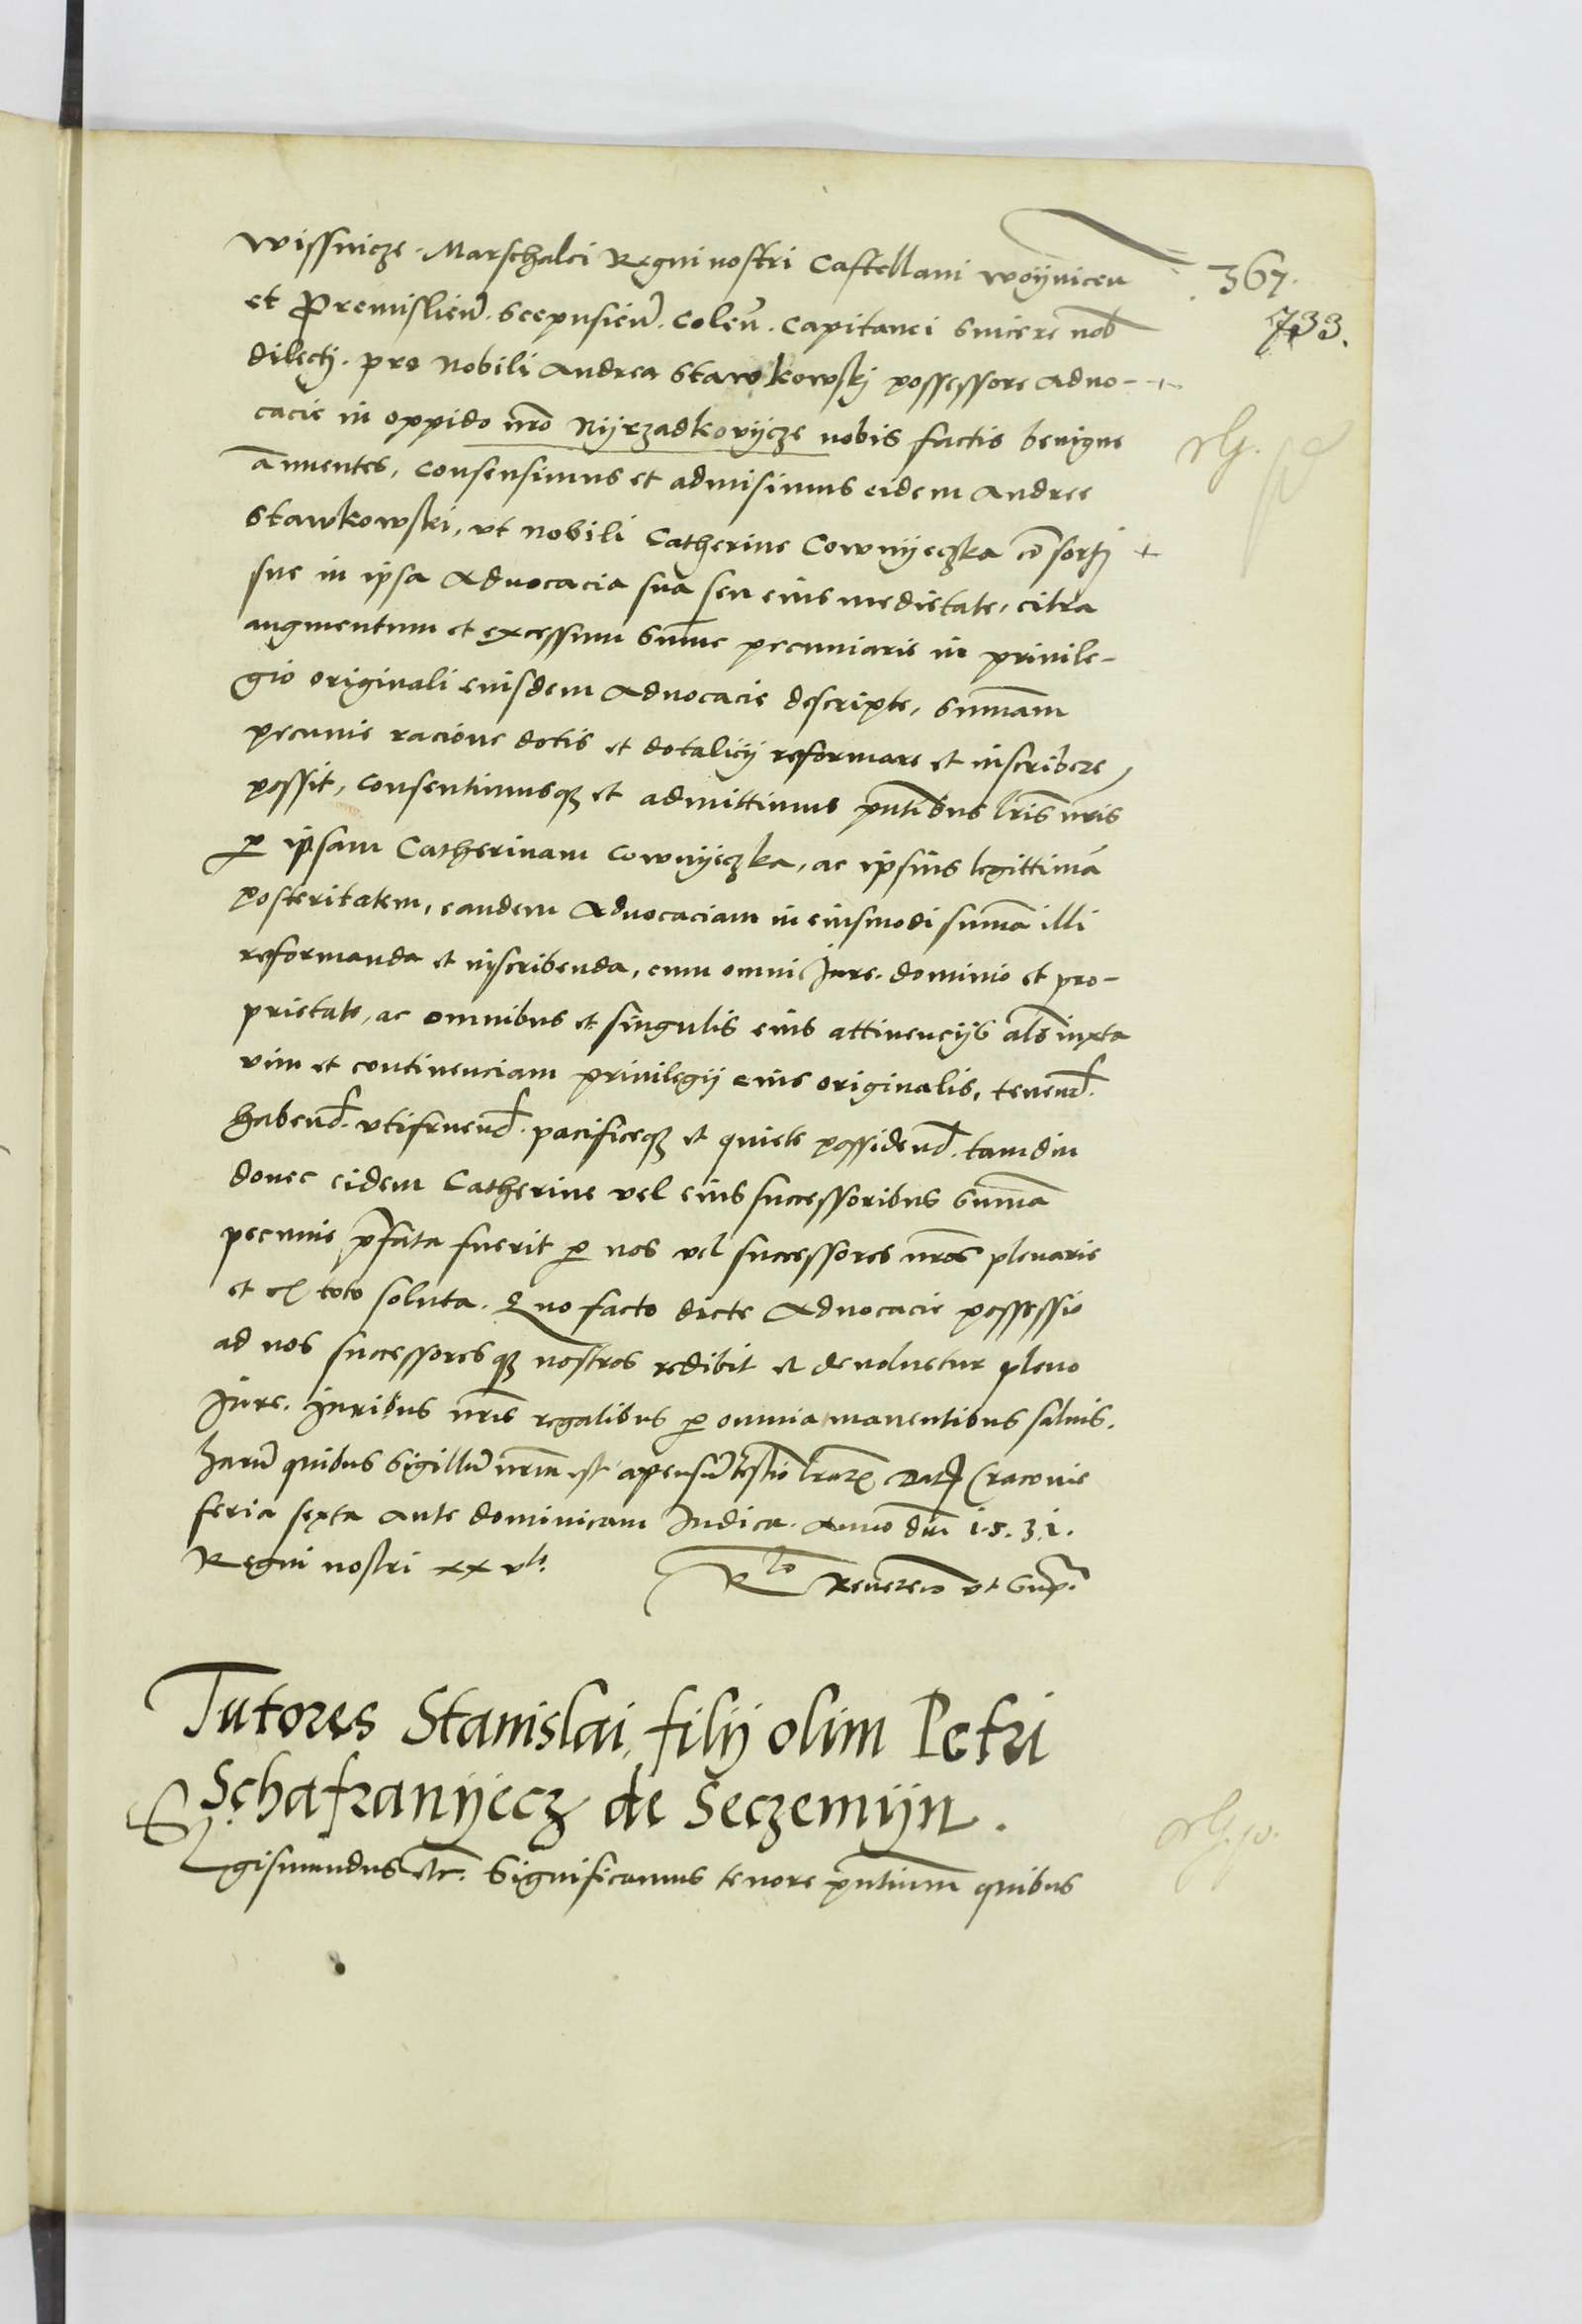 wissnicze. Marschalci Regni nostri Castellani woÿnicen̄
367.
et Premislien̄. Scepusien̄. Colen̄. Capitanei sincere nob̄
733.
dilectj. pro Nobili Andrea Stawkowskj possessore Aduo-
cacie in oppido nr̄o Nÿrzadkovÿcze nobis factis benigne
ānuentes, consensimus et admisimus eidem Andree
Stawkowski, vt nobili Catherine Cownÿeczka cōsortj
sue in ipsa Aduocacia sua seu eius medietate, citra
augmentum et excessum Sum̄e pecuniarie in priuile-
gio originali euisdem Aduocacie descripte, Sum̄am
pecunie racione dotis et dotalicij reformare et inscribere
possit, consentimusqꝫ et admittimus pn̄tibus lr̄is nr̄is
ꝑ ipsam Catherinam Cownÿeczka, ac ipsius legittimā
posteritatem, eandem Aduocaciam in eiusmodi sum̄a illi
reformanda et inscribenda, cum omni Jure. dominio et pro-
prietate, ac omnibus et singulis eius attinencijs al̄s iuxta
vim et continenciam priuilegij eius originalis, tenend̄.
habend̄. vtifruend̄. pacificeqꝫ et quiete possidend̄. tamdiu
donec eidem Catherine vel eius successoribus Sum̄a
pecunie p̄fata fuerit ꝑ nos vel successores nr̄os plenarie
et ex toto soluta. Quo facto dicte Aduocacie possessio
ad nos successoresqꝫ nostros redibit et deuoluetur pleno
Jure. Juribus nr̄is regalibus ꝑ omnia manentibus saluis.
harū quibus Sigillū nr̄um est apensū testio lr̄arꝫ Dat̄ Cracouie
feria sexta Ante dominicam Judica. Anno dn̄i 1.5.31.
Regni nostri xxvto.
Rlo Reueren̄ vt Supra
Tutores Stanislai, filij olim Petri
Schafranÿecz de Seczemÿn.
Sigismundus etc. Significamus tenore pn̄tium quibus